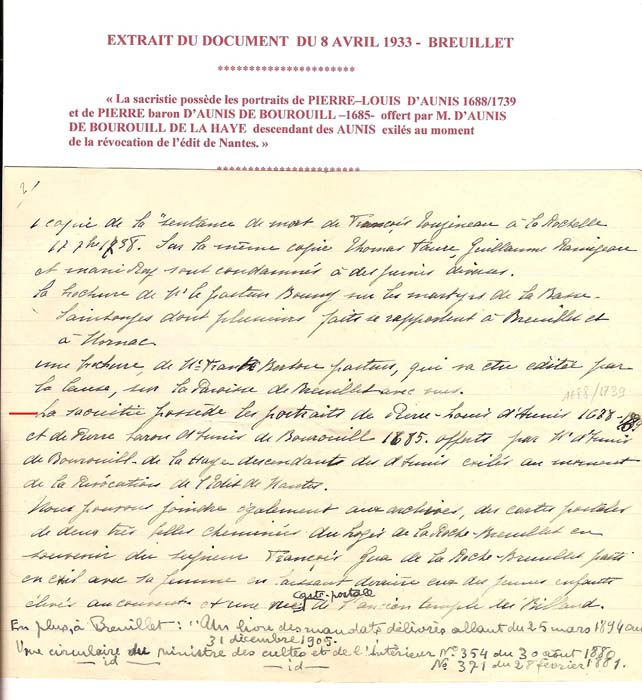 EXTRAIT DU DOCUMENT DU 8 AVRIL 1933 - BREUILLET
**********************
« La sacristie possède les portraits de PIERRE–LOUIS D'AUNIS 1688/1739
et de PIERRE baron D'AUNIS DE BOUROUILL –1685- offert par M. D'AUNIS
DE BOUROUILL DE LA HAYE descendant des AUNIS exilés au moment
de la révocation de l'édit de Nantes. »
**********************
2/
1 copie de la "sentance de mort de François Touzineau à la Rochelle
17 7bre 1738. Sur la même copie Thomas Faure, Guillaume
et marie Roy sont condamnés à des peines diverses.
La brochure de Mr le pasteur sur les martyrs de la Basse-
Saintonges dont plusieurs faits se rapportent à Breuillet et
à Mornac
une brochure, de Mr Frank pasteur, qui va etre editée par
la Cause, sur la Paroisse de Breuillet avec vues.
1688/1739
La sacristie possède les portraits de Pierre-Louis d'Aunis 1688-
et de Pierre baron d'Aunis de Bourouill 1685. offerts par Mr d'Aunis
de Bourouill-de la Haye descendants des d'Aunis exilés au moment
de la Révocation de l'Edit de Nantes.
Nous pouvons joindre également aux archives, des cartes postales
de deux très belles cheminées du Logis de La Roche-Breuillet en
souvenir du seigneur François Gua de La Roche-Breuillet parti
en exil avec sa femme en laissant derrière eux des jeunes enfants
élevés au couvent et une carte-postale de l'ancien temple du Billaud.
En plus, à Breuillet : "Un livre des mandats délivrés allant du 25 mars 1894 au
31 décembre 1905.
Une circulaire du ministre des cultes et de l'Intérieur N° 354 du 30 août 1880
— id — — id — N° 371 du 28 février 1881.